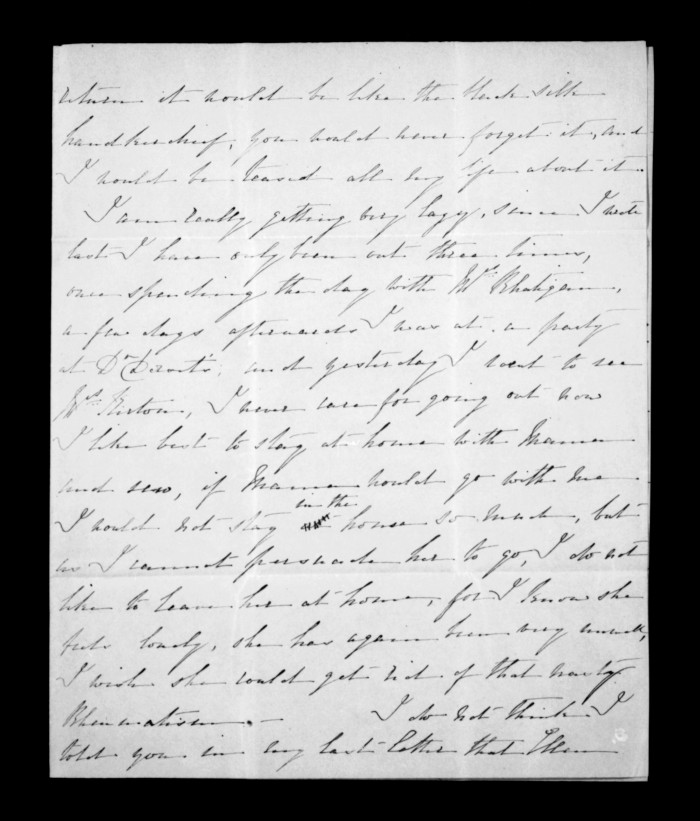 return it would be like the black silk
handkerchief, you would never forget it, and
I would be teased all my life about it.
I am really getting very lazy, since I wrote
last I have only been out three times,
once spending the day with Mrs Rhatigan,
a few days afterwards I was at a party
at Dr and yesterday I went to see
Mrs I never care for going out now
I like best to stay at home with Mama
and sew, if Mama would go with me
I would not stay in the house so much, but
as I cannot persuade her to go, I do not
like to leave her at home, for I know she
feels lonely, she has again been very unwell,
I wish she could get rid of that nasty
Rheumatism.— I do not think I
told you in my last letter that Ellen